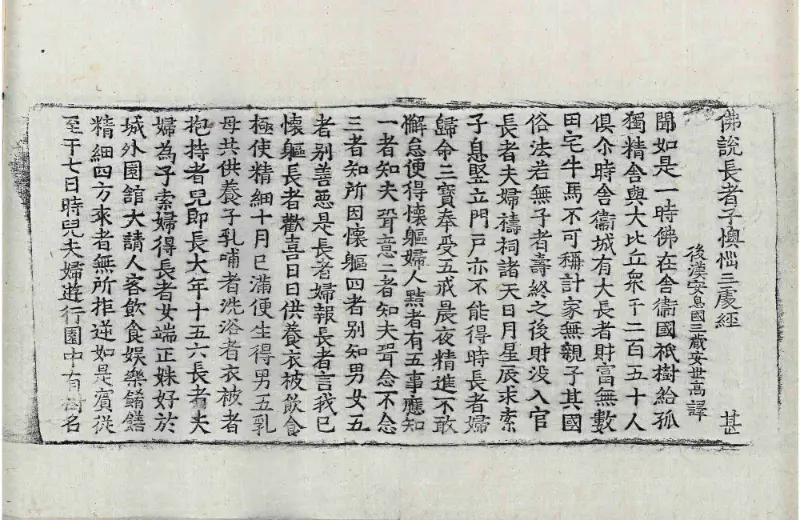 佛說長者子懊惱三處經 甚
後漢安息國三藏安世高譯
聞如是一時佛在舍衞國祇樹給孤
獨精舍與大比丘衆千二百五十人
俱尒時舍衞城有大長者財富無數
田宅牛馬不可稱計家無親子其國
俗法若無子者壽終之後財没入官
長者夫婦禱祠諸天日月星辰求索
子息竪立門戶亦不能得時長者婦
歸命三寶奉受五戒晨夜精進不敢
懈怠便得懷軀婦人黠者有五事應知
一者知夫聟意二者知夫聟念不念
三者知所因懷軀四者別知男女五
者别善惡是長者婦報長者言我已
懷軀長者歡喜日日供養衣被飲食
極使精細十月已滿便生得男五乳
母共供養子乳哺者洗浴者衣被者
抱持者兒即長大年十五六長者夫
婦為子索婦得長者女端正姝好於
城外園館大請人客飲食娛樂餚饍
精細四方來者無所拒逆如是賓從
至于七日時兒夫婦遊行園中有樹名